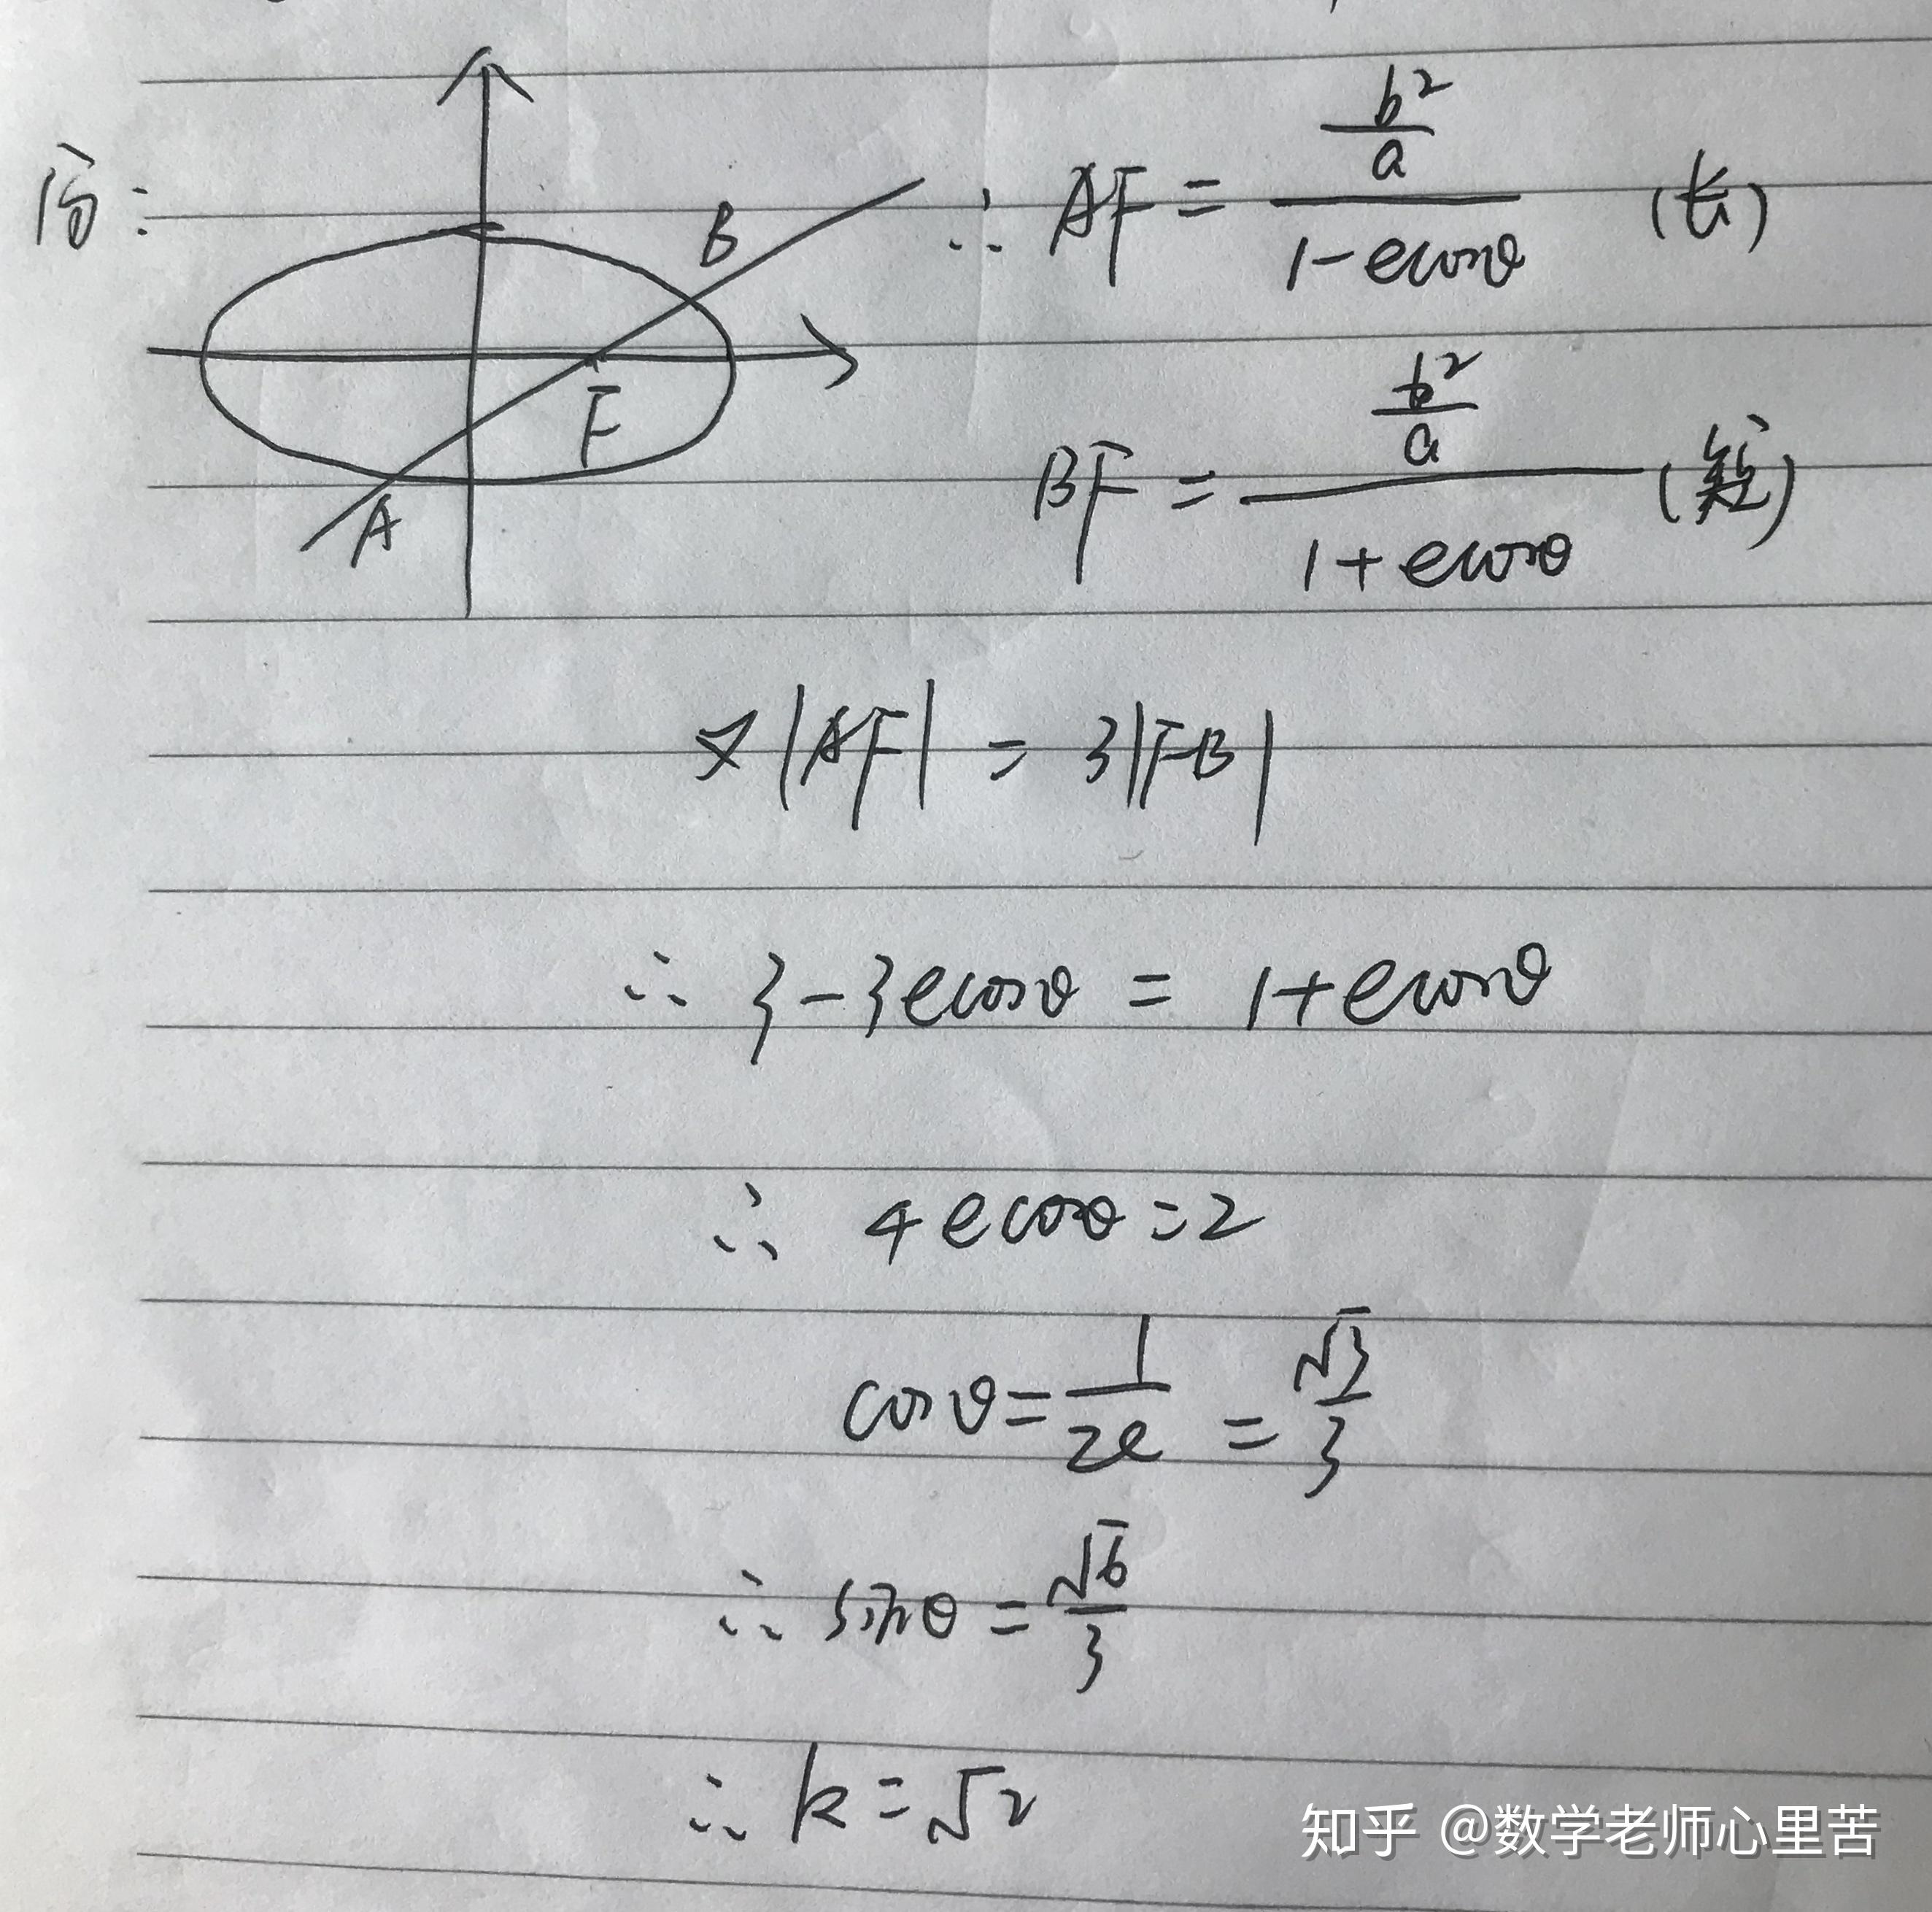 B
A
F
∴ AF = \frac{\frac{b²}{a}}{1-ecosθ} (长)
BF = \frac{\frac{b²}{a}}{1+ecosθ} (短)
又|AF| = 3|FB|
∴ 3-3ecosθ = 1+ecosθ
∴ 4ecosθ=2
cosθ=\frac{1}{2e} = \frac{√3}{3}
∴ sinθ = \frac{√6}{3}
∴ k=√2
知乎 @数学老师心里苦